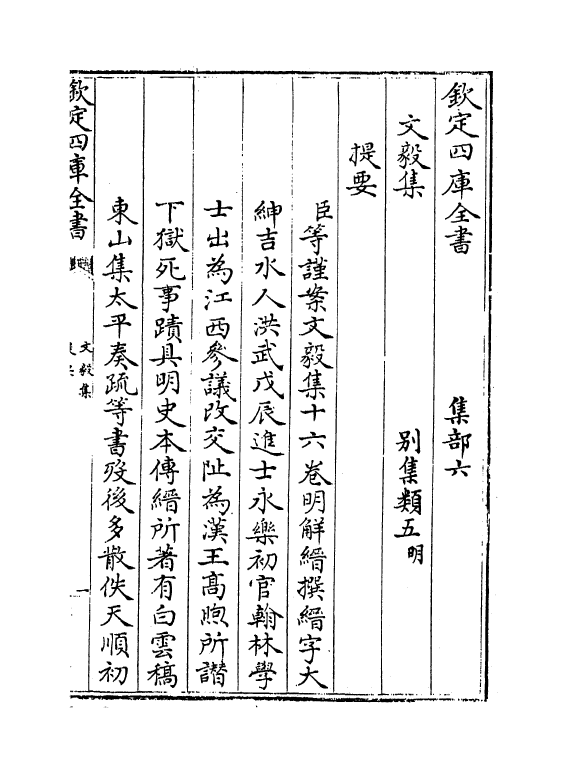 欽定四庫全書　集部六
文毅集　別集類五明
提要
臣等謹案文毅集十六卷明解縉撰縉字大
紳吉水人洪武戊辰進士永樂初官翰林學
士出為江西參議改交阯為漢王高煦所譖
下獄死事蹟具明史本傳縉所著有白雲稿
東山集太平奏疏等書歿後多散佚天順初
欽定四庫全書
文毅集
一